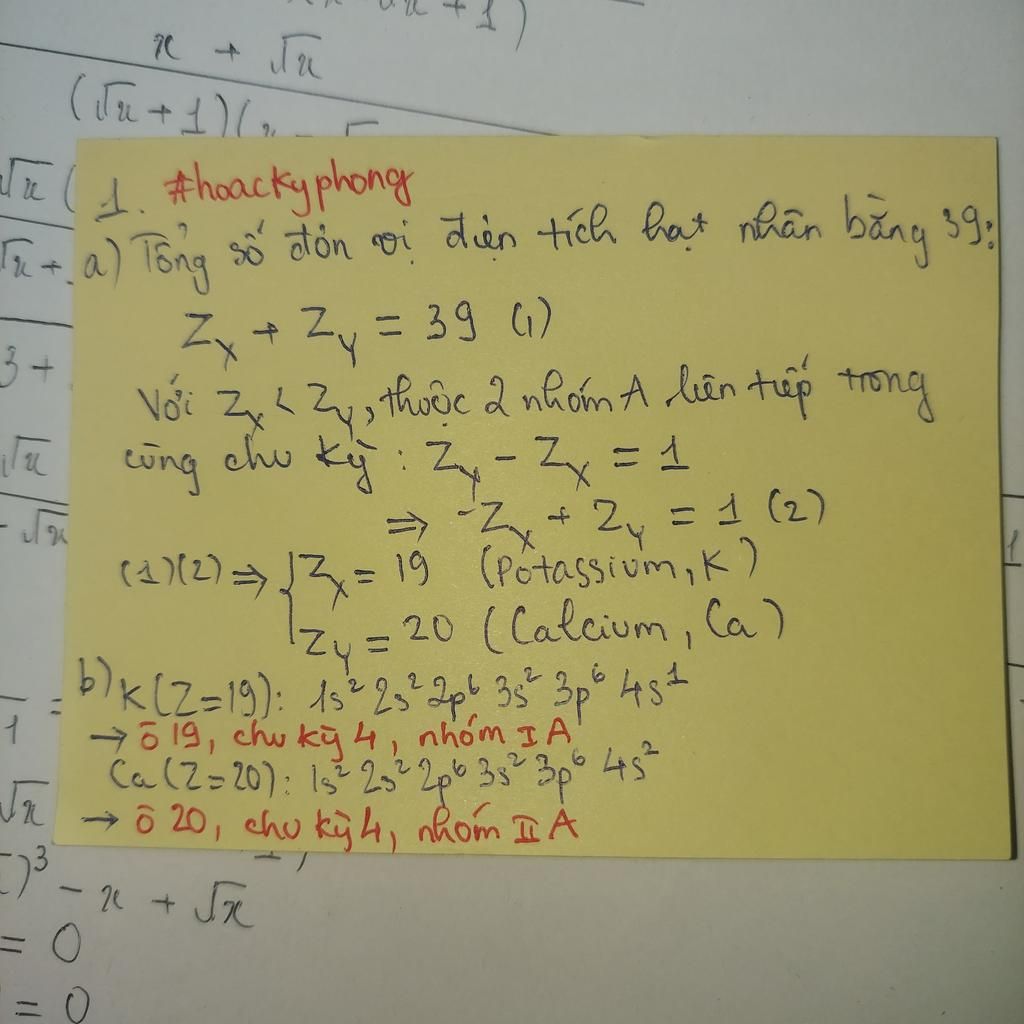 x + √x
(√x + 1)(x -
1. #hoackyphong
a) Tổng số đơn vị điện tích hạt nhân bằng 39:
Z_X + Z_Y = 39 (1)
Với Z_X < Z_Y, thuộc 2 nhóm A liên tiếp trong
cùng chu kỳ: Z_Y - Z_X = 1
⇒ -Z_X + Z_Y = 1 (2)
(1)(2) ⇒ { Z_X = 19 (Potassium, K)
Z_Y = 20 (Calcium, Ca)
b) K(Z=19): 1s² 2s² 2p⁶ 3s² 3p⁶ 4s¹
→ ô 19, chu kỳ 4, nhóm IA
Ca(Z=20): 1s² 2s² 2p⁶ 3s² 3p⁶ 4s²
→ ô 20, chu kỳ 4, nhóm IIA
)³ - x + √x
= 0
= 0